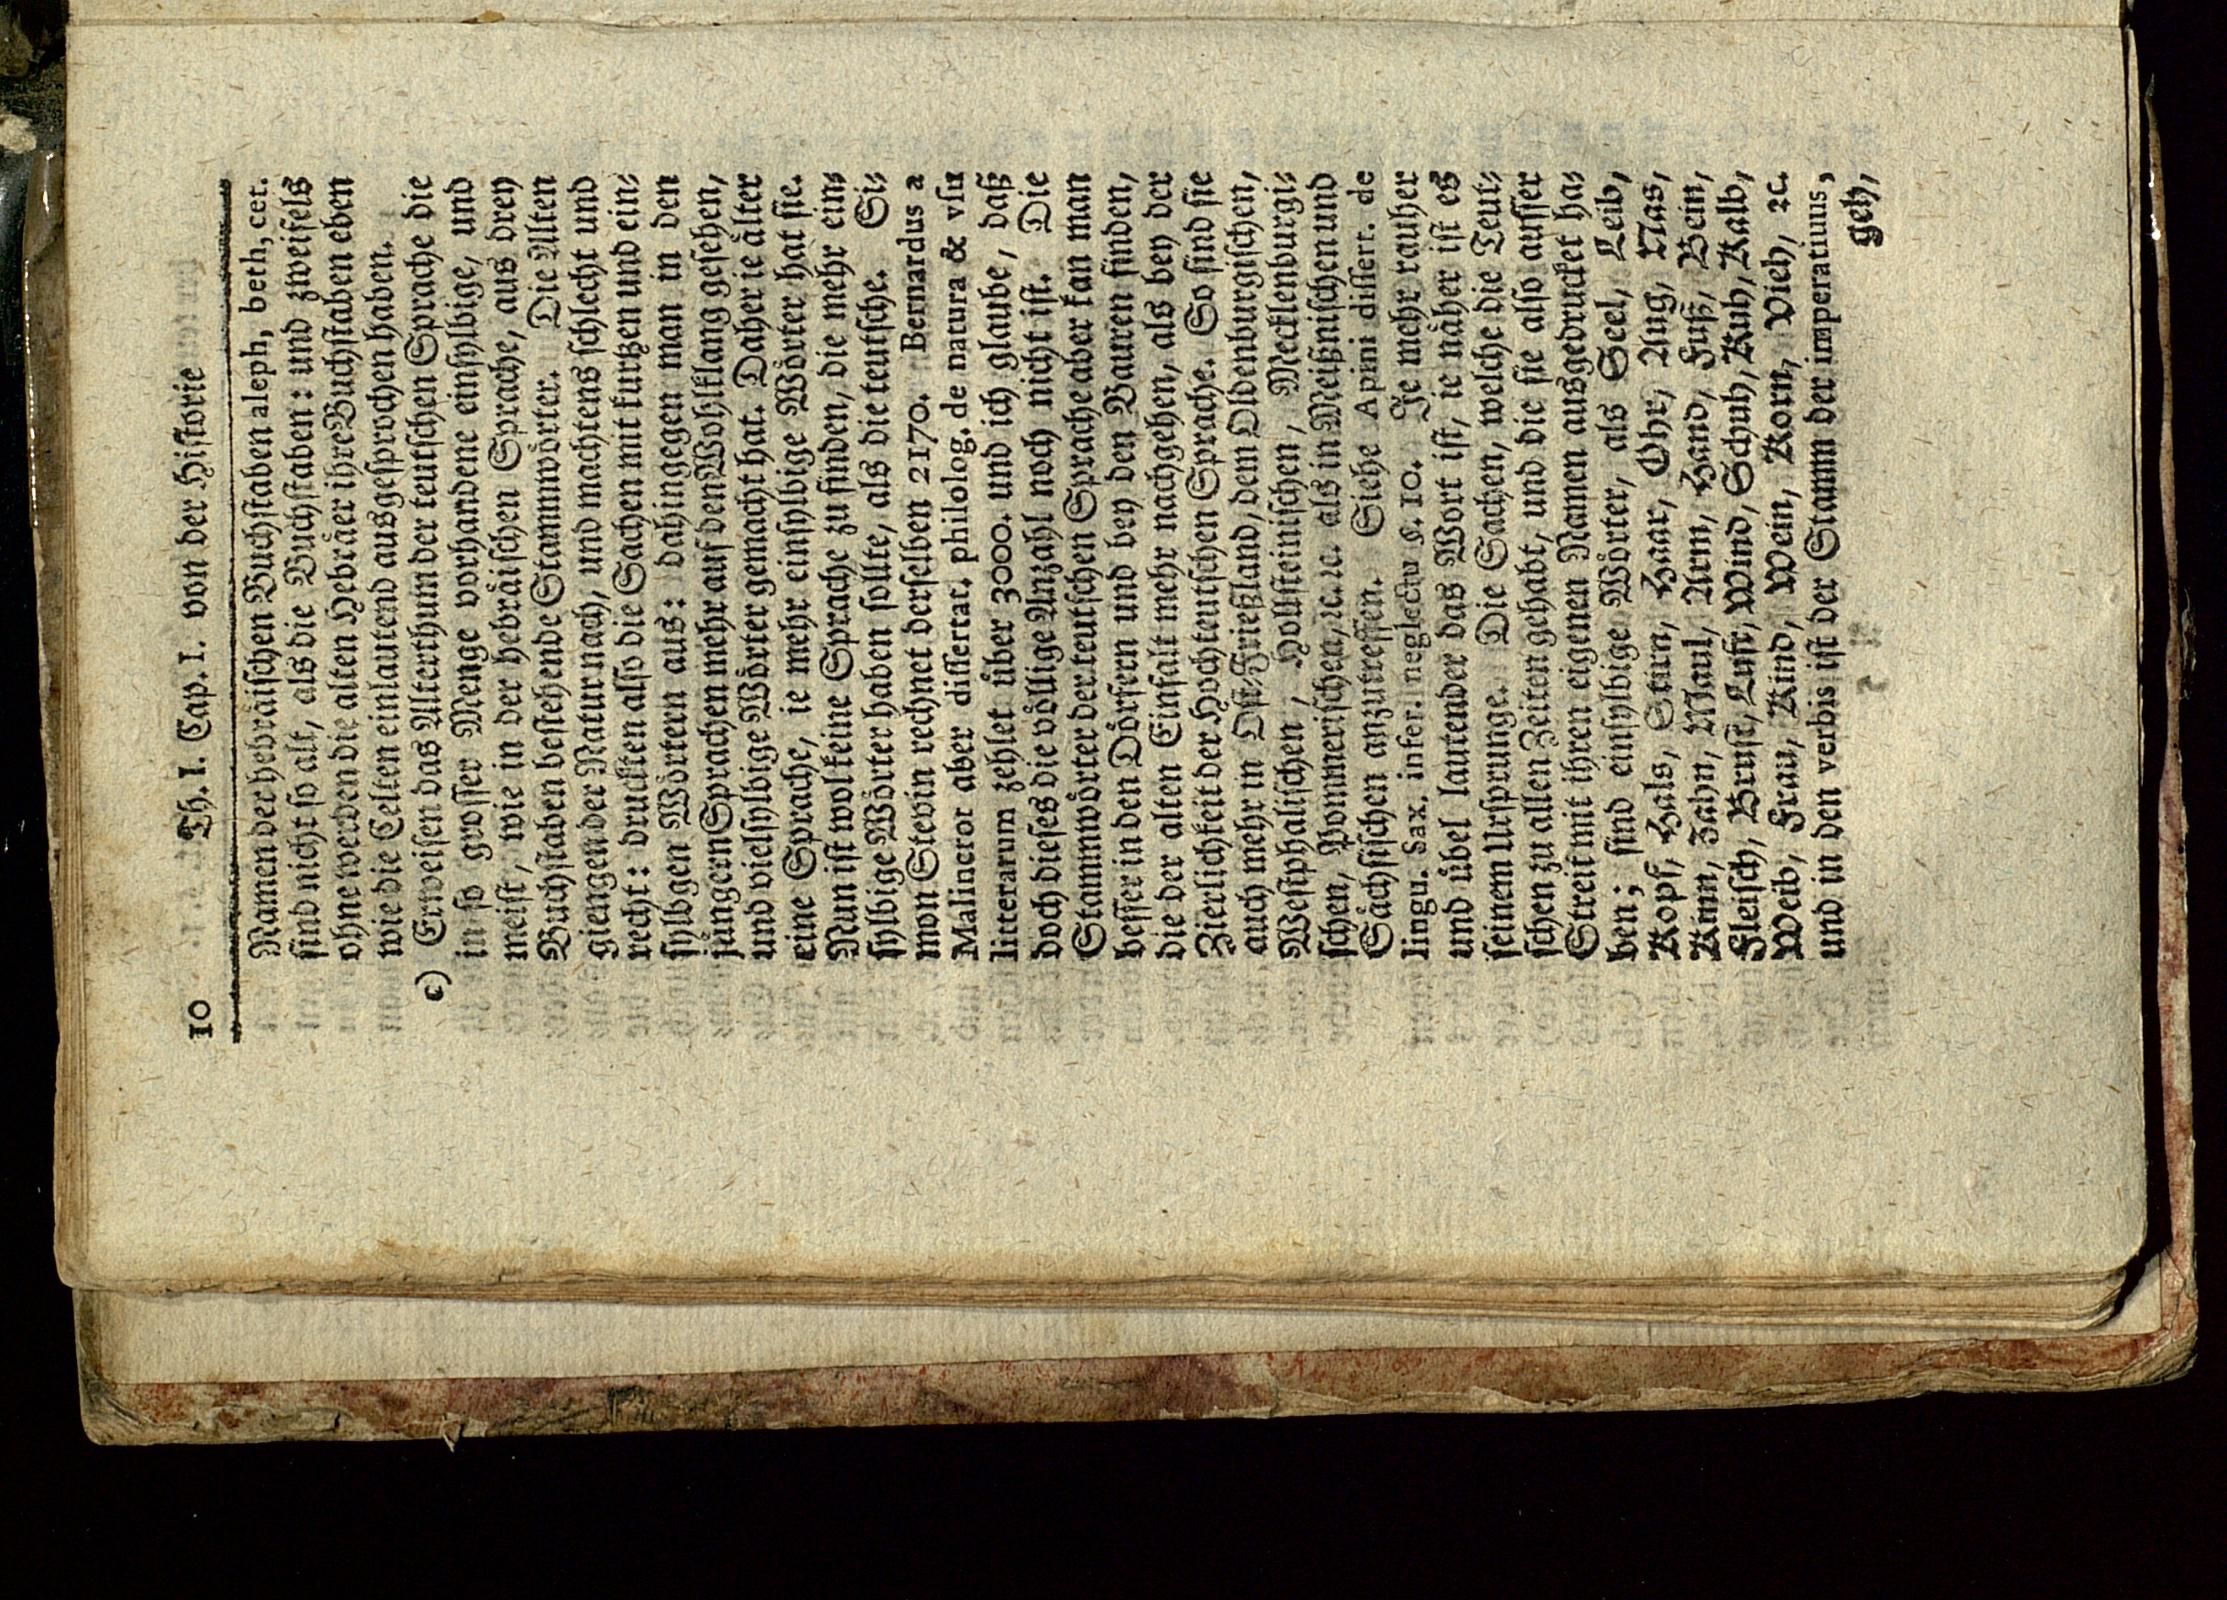 10 Th. I. Cap. I. von der Historie
Namen der hebräischen Buchstaben aleph, beth, cet.
sind nicht so alt, als die Buchstaben: und zweifels
ohne werden die alten Hebräer ihre Buchstaben eben
wie die Celten einlautend ausgesprochen haben.
c) Erweisen das Alterthum der teutschen Sprache die
in so grosser Menge vorhandene einsylbige, und
meist, wie in der hebräischen Sprache, aus drey
Buchstaben bestehende Stammwörter. Die Alten
giengen der Natur nach, und machtens schlecht und
recht: druckten also die Sachen mit kurtzen und ein⸗
sylbgen Wörtern aus: dahingegen man in den
jüngern Sprachen mehr auf den Wohlklang gesehen,
und vielsylbige Wörter gemacht hat. Daher ie älter
eine Sprache, ie mehr einsylbige Wörter hat sie.
Nun ist wol keine Sprache zu finden, die mehr ein⸗
sylbige Wörter haben sollte, als die teutsche. Si⸗
mon Stevin rechnet derselben 2170. Bernardus a
Malincrot aber dissertat. philolog. de natura & vsu
litterarum zehlet über 3000. und ich glaube, daß
doch dieses die völlige Anzahl noch nicht ist. Die
Stammwörter der teutschen Sprache aber kan man
besser in den Dörfern und bey den Bauren finden,
die der alten Einfalt mehr nachgehen, als bey der
Zierlichkeit der Hochteutschen Sprache. So sind sie
auch mehr in Ost⸗Frießland, dem Oldenburgischen,
Westphalischen, Hollsteinischen, Mecklenburgi⸗
schen, Pommerischen, ꝛc. ꝛc. als in Meißnischen und
Sächsischen anzutreffen. Siehe Apini dissert. de
lingu. Sax. infer. neglectu §. 10. Je mehr rauher
und übel lautender das Wort ist, ie näher ist es
seinem Ursprunge. Die Sachen, welche die Teut⸗
schen zu allen Zeiten gehabt, und die sie also ausser
Streit mit ihren eigenen Namen ausgedrucket ha⸗
ben; sind einsylbige Wörter, als Seel, Leib,
Kopf, Hals, Stirn, Haar, Ohr, Aug, Nas,
Kinn, Zahn, Maul, Arm, Hand, Fuß, Bein,
Fleisch, Brust, Luft, Wind, Schuh, Kuh, Kalb,
Weib, Frau, Kind, Wein, Korn, Vieh, ꝛc.
und in den verbis ist der Stamm der imperatiuus,
geh,